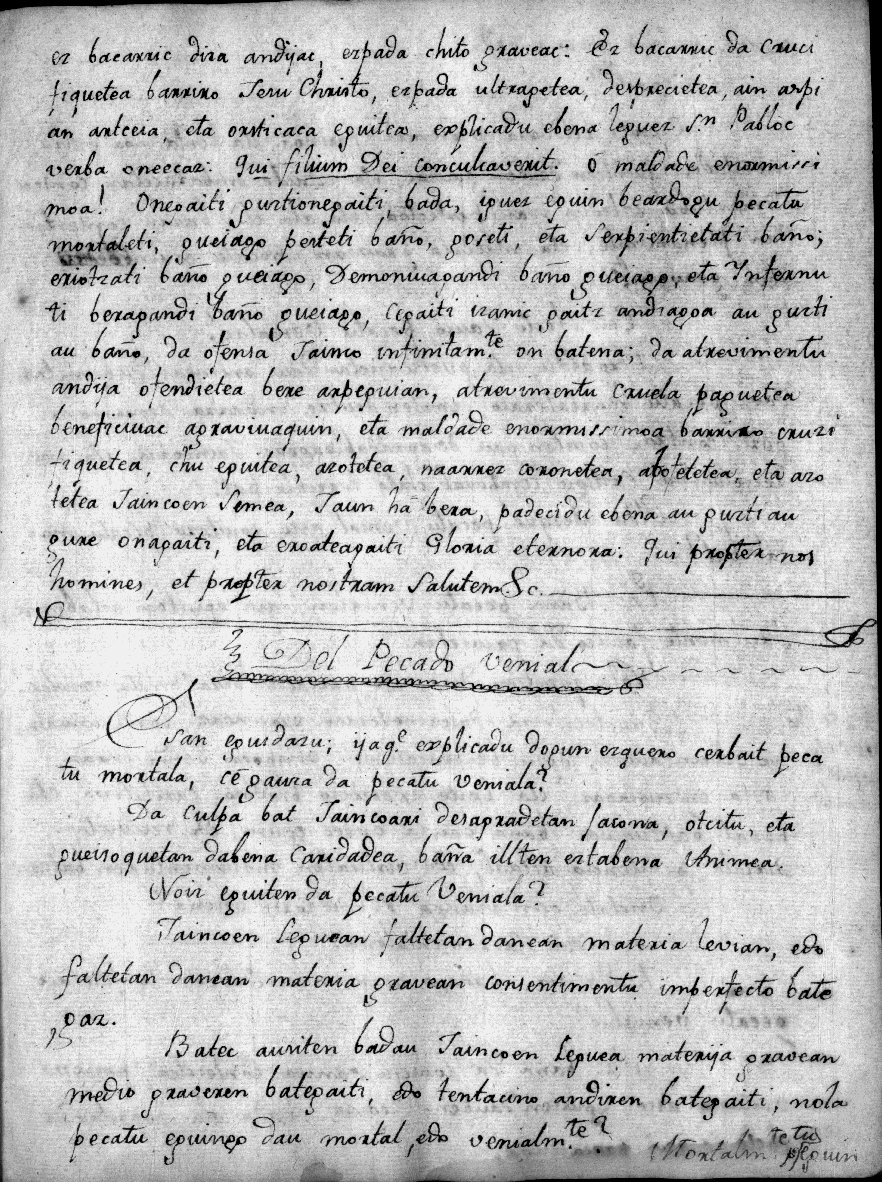 ez bacarric dira andijac, ezpada chito graveac: Ez bacarric da cruci
fiquetea barriro Jesu Christo, ezpada ultragetea, desprecietea, ain azpi
an artceia, eta orsticaca eguitea, explicadu ebena leguez S.n Pabloc
verba oneecaz: Qui filium Dei conculcaverit. O maldade enormissi
moa! Onegaiti gurtionegaiti, bada, iguez eguin beardogu pecatu
mortaleti, gueiago pesteti baño, goseti, eta serpientzetati baño;
eriotzati baño gueiago, Demoniuagandi baño gueiago, eta Infernu
ti beragandi baño gueiago, cegaiti izanic gaitz andiagoa au guzti
au baño, da ofensa Jainco infinitam.te on batena; da atrevimentu
andija ofendietea bere arpeguian, atrevimentu cruela paguetea
beneficiuac agraviuaquin, eta maldade enormissimoa barriro cruzi
fiquetea, chu eguitea, azotetea, naarrez coronetea, abofetetea, eta azo
tetea Jaincoen Semea, Jaun ha bera, padecidu ebena au guzti au
gure onagaiti, eta eroateagaiti Gloria eternora: Qui propter nos
homines, et propter nostram Salutem &c.
Del Pecado venial
San eguidazu; ija q.e explicadu dogun ezquero cerbait peca
tu mortala, ce gauza da pecatu veniala?
Da culpa bat Jaincoari desagradetan jacona, otcitu, eta
gueisoquetan dabena Caridadea, baña illten eztabena Animea.
Noiz eguiten da pecatu Veniala?
Jaincoen Leguean faltetan danean materia levian, edo
faltetan danean materia gravean consentimentu imperfecto bate
gaz.
Batec austen badau Jaincoen Leguea materija gravean
medio graveren bategaiti, edo tentacino andiren bategaiti, nola
pecatu eguingo dau mortal, edo venialm.te?
Mortalm.te